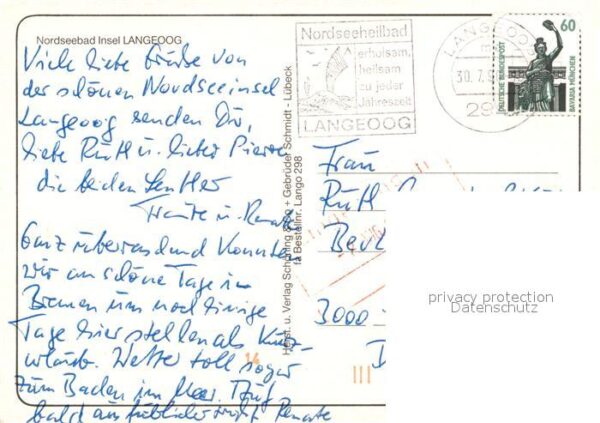 Nordseebad Insel LANGEOOG
Viele liebe Grüße von
der schönen Nordseeinsel
Langeoog senden Dir,
liebe Ruth u. lieber Pierre
die beiden
Traute u. Renate
Ganz überraschend konnte
wir an schöne Tage in
Bremen um noch einige
Tage hier stellen als Kurz-
urlaub. Wetter toll sogar
zum Baden im Meer. Auf
bald Renate
Herst. u. Verlag Schöning & Co + Gebrüder Schmidt - Lübeck
fa Bestellnr. Lango 298
Nordseeheilbad
erholsam,
heilsam
zu jeder
Jahreszeit
LANGEOOG
LANGEOOG
30.7.9
29
60
DEUTSCHE BUNDESPOST
BAVARIA MÜNCHEN
Frau
Ruth
3000
14
privacy protection
Datenschutz